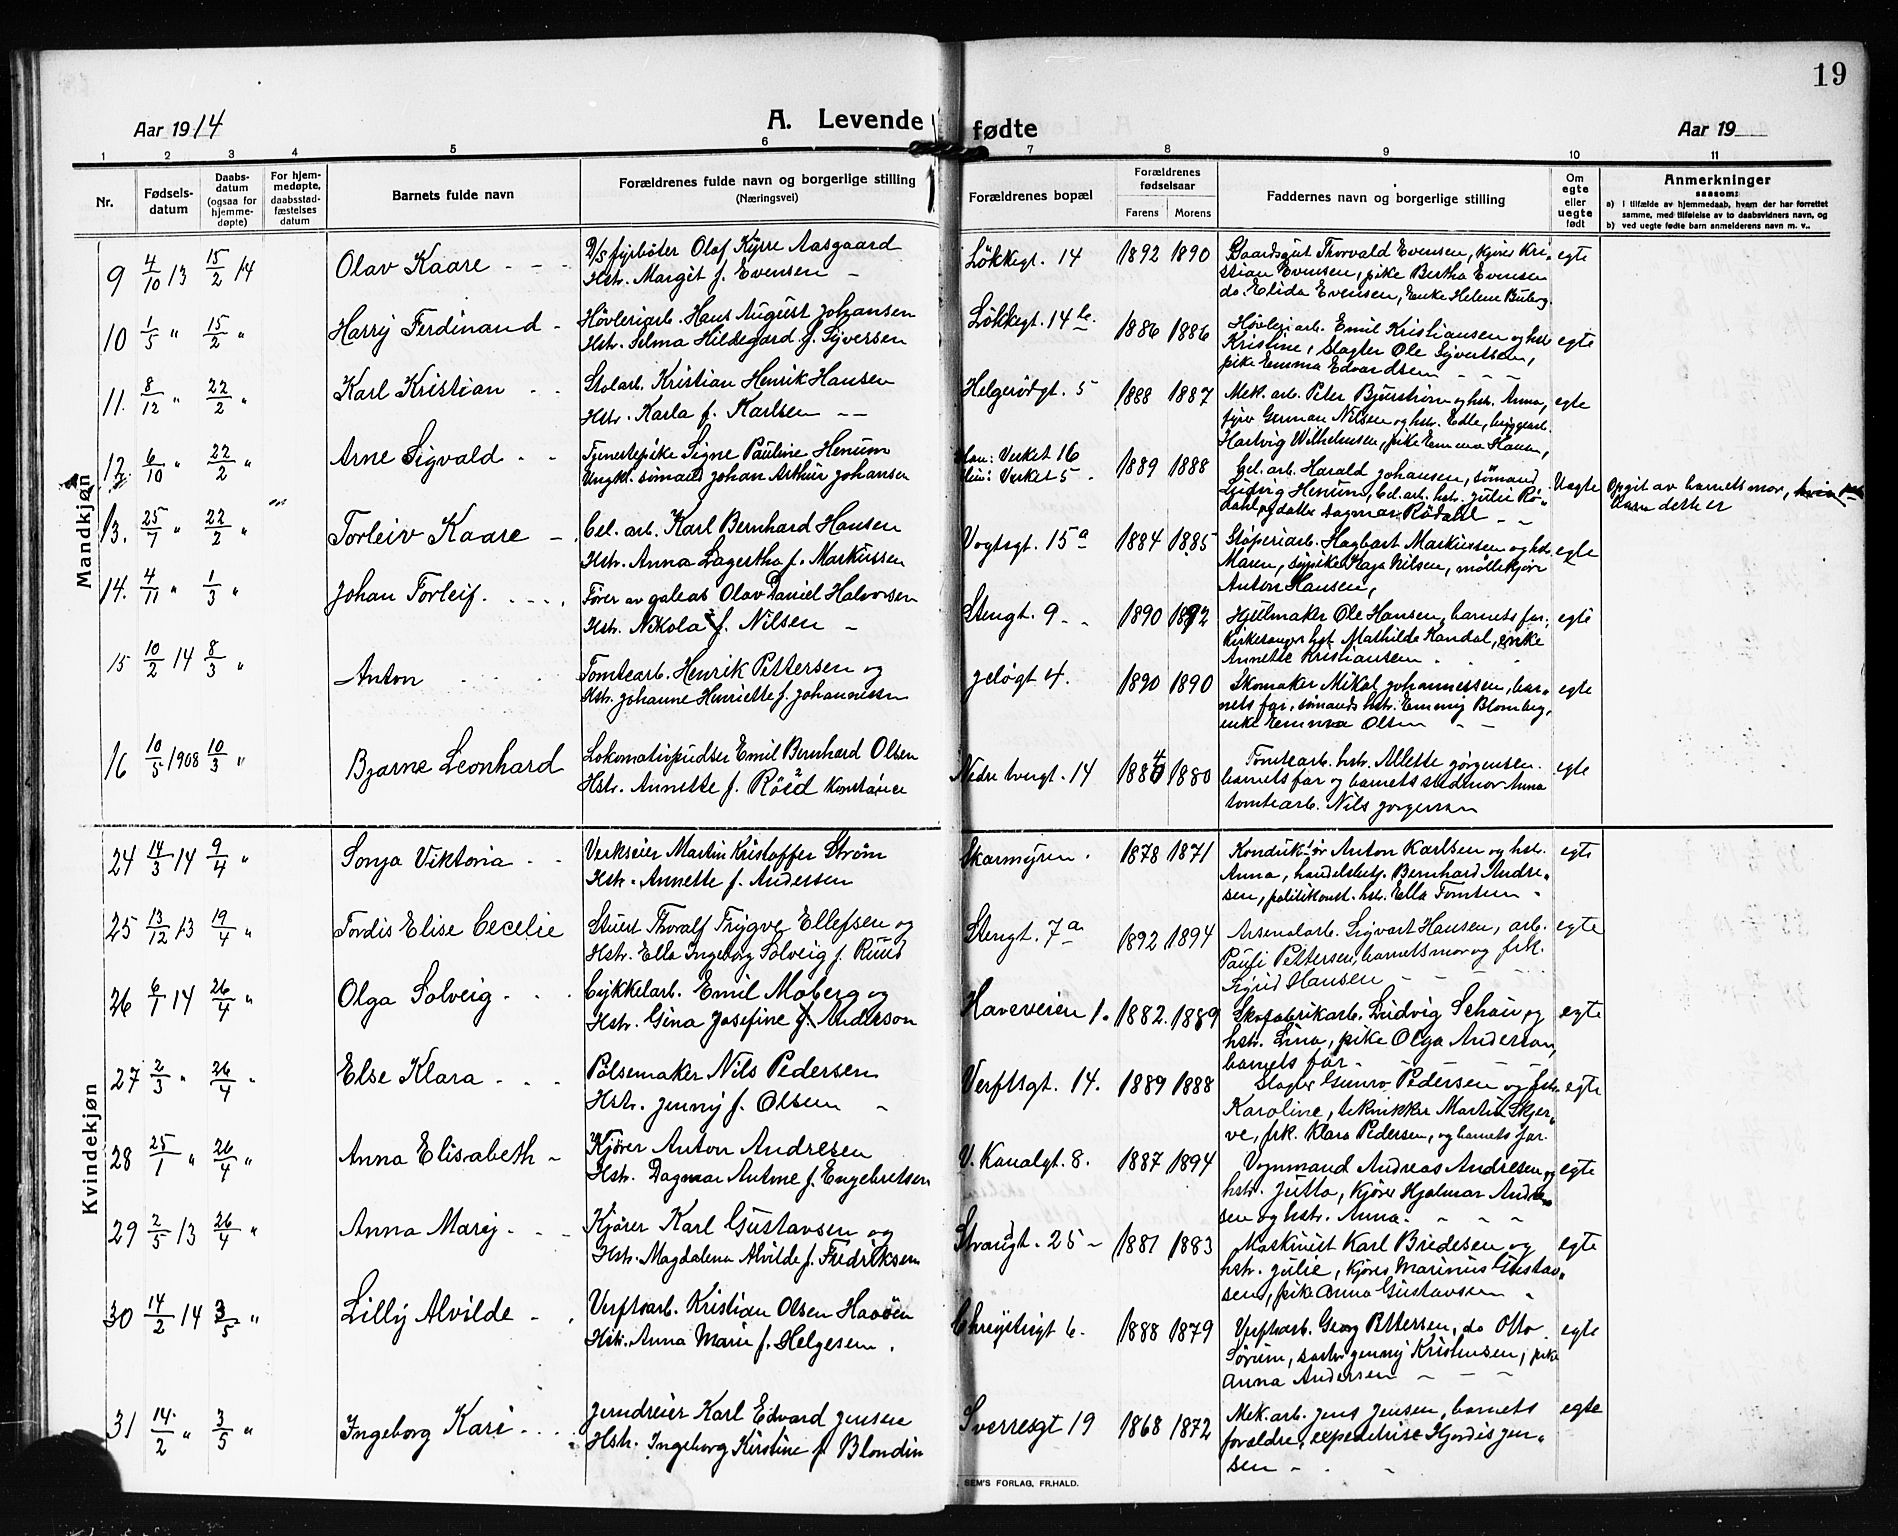 19
Aar 1914 A. Levende fødte Aar 19
1 2 3 4 5 6 7 8 9 10 11
Nr. Fødsels-datum Daabs-datum (ogsaa for hjemme-døpte) For hjem-medøpte, daabsstad-fæstelses datum Barnets fulde navn Forældrenes fulde navn og borgerlige stilling (Næringsvei) Forældrenes bopæl Forældrenes fødselsaar Farens Morens Faddernes navn og borgerlige stilling Om egte eller uegte født Anmerkninger
saasom:
a) i tilfælde av hjemmedaab, hvem der har forrettet
samme, med tilføielse av to daabsvidners navn, og
b) ved uegte fødte barn anmelderens navn m. v..
Mandkjøn
9 4/10 13 15/2 14 Olav Kaare D/S fyrbøter Olaf Kyrre Aasgaard Løkkegt. 14 1892 1890 Gaardsgut Thorvald Evensen, kjører Kri- egte
Hstr. Margit f. Evensen stian Evensen, pike Bertha Evensen
do. Elida Evensen, Enke Helene
10 1/5 " 15/2 " Harry Ferdinand Høvleriarb. Hans August Johansen Løkkegt. 14 b. 1886 1886 Høvleriarb. Emil Kristiansen og hstr. egte
Hstr. Selma Hildegard f. Syversen Kristine, Slagter Ole Syvertsen,
pike Emma Edvardsen
11. 8/12 " 22/2 " Karl Kristian Stolarb. Kristian Henrik Hansen Helgerødgt. 5 1888 1887 Mek. arb. Peter Bjurstrøm og hstr. Anna, egte
Hstr. Karla f. Karlsen fyrb. German Nilsen og hstr. Edle, bryggearb.
Hartvig Wilhelmsen, pike Emma Hansen,
12. 6/10 " 22/2 " Arne Sigvald Tjenestepike Signe Pauline Henum Verket 16 1889 1888 Cel. arb. Harald Johansen, sømand Uegte Opgit av barnets mor,
Ungkl. sømand Johan Arthur Johansen Verket 5 Ludvig Henum, Cel. arb. hstr. Julie Rø- 
dahl og datter Dagmar Rødahl
13. 25/7 " 22/2 " Torleiv Kaare Cel. arb. Karl Bernhard Hansen Vogtsgt. 15 a 1884 1885 Støperiarb. Hagbart Markussen og hstr. egte
Hstr. Anna Lagertha f. Markussen Maren, sypike Kaja Nilsen, møllekjører
Anton Hansen,
14. 4/11 " 1/3 " Johan Torleif. Fører av galeas Olav Daniel Halvorsen Stengt. 9 1890 1892 Hjulmaker Ole Hansen, barnets far, egte
Hstr. Nikola f. Nilsen kirkesanger hst. Mathilde Kandal, enke
Annette Kristiansen
15 10/2 14 8/3 " Anton Tomtearb. Henrik Pettersen og Geløgt 4. 1890 1890 Skomaker Mikal Johannessen, bar- egte
Hstr. Johanne Henriette f. Johannessen nets far, sømands hstr. Emmy Blomberg,
enke Emma Olsen
16 10/5 1908 10/3 " Bjarne Leonhard Lokomativpudser Emil Bernhard Olsen Nedre tvergt. 14 1880 Tomtearb. hstr. Allette Jørgensen. egte
Hstr. Annette f. Røed barnets far og barnets stedmor Anna
tomtearb. Nils Jørgensen
Kvindekjøn
24 14/3 14 9/4 " Sonja Viktoria Verkseier Martin Kristoffer Strøm Skarmyren. 1878 1871 Konduktør Anton Karlsen og hst. egte
Hstr. Annette f. Andersen Anna, handelsbetj. Bernhard Andre-
sen, politikonst. hstr. Ella Tomtsen
25 13/12 13 19/4 " Tordis Elise Cecelie Stuert Thoralf Trygve Ellefsen og Stengt. 7 a 1892 1894 Arsenalarb. Sigvart Hansen, arb. egte
Hstr. Ella Ingeborg Solveig f. Ruud Pauli Pettersen, barnets mor og frk.
Sigrid Hansen
26 6/1 14 26/4 " Olga Solveig Cykkelarb. Emil Moberg og Haveveien 1. 1882. 1889 Skofabrikarb. Ludvig Schau og egte
Hstr. Gina Josefine f. Anderson hstr. Lina, pike Olga Anderson,
barnets far
27 2/3 " 26/4 " Else Klara Pølsemaker Nils Pedersen Verftsgt. 14. 1889 1888 Slagter Gunro Pedersen og hstr. egte
Hstr. Jenny f. Olsen Karoline, teknikker Martin Skjer-
ve, frk. Klara Pedersen, og barnets far.
28 25/1 " 26/4 " Anna Elisabeth Kjører Anton Andresen V. Kanalgt. 8. 1887 1894 Vognmand Andreas Andresen og egte
Hstr. Dagmar Antone f. Engebretsen hstr. Jutta, kjører Hjalmar Andre-
sen og hstr. Anna
29 2/5 13 26/4 " Anna Marij Kjører Karl Gustavsen og Strandgt. 25 1881 1883 Maskinist Karl Bredesen og egte
Hstr. Magdalena Alvilde f. Fredriksen hstr. Julie, kjører Marinius Gustav-
sen, pike Anna Gustavsen
30 14/2 14 3/5 " Lilly Alvilde Verftsarb. Kristian Olsen Haaøen Chrystiegt 6. 1888 1879 Verftsarb. Georg Pettersen, do Otto egte
Hstr. Anna Marie f. Helgesen. Sørum, Jenny Kristensen, pike
Anna Andersen
31 14/2 " 3/5 " Ingeborg Kari Jerndreier Karl Edvard Jensen Sverresgt 19 1868 1872 Mek. arb. Jens Jensen, barnets egte
Hstr. Ingeborg Kirstine f. Blondin forældre, expeditrise Hjordis Jen-
sen
SEM'S FORLAG, FR.HALD.